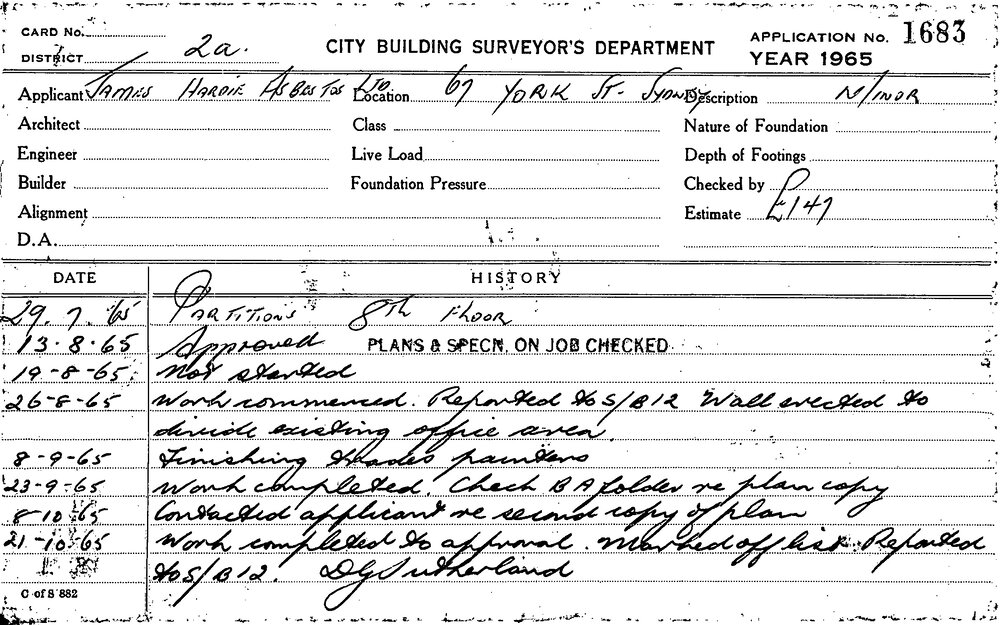 CARD No.
DISTRICT 2a.
CITY BUILDING SURVEYOR'S DEPARTMENT
APPLICATION No. 1683
YEAR 1965
Applicant JAMES HARDIE ASBESTOS LTD. Location 67 YORK ST. SYDNEY Description MINOR
Architect Class Nature of Foundation
Engineer Live Load Depth of Footings
Builder Foundation Pressure Checked by
Alignment Estimate £147
D.A.
DATE HISTORY
29.7.65 PARTITIONS 8TH FLOOR
13.8.65 Approved PLANS & SPECN. ON JOB CHECKED
19-8-65 Not started
26-8-65 Work commenced. Reported to S/B12 Wall erected to
divide existing office area.
8-9-65 Finishing trades painters
23-9-65 Work completed. Check BA folder re plan copy
8-10-65 Contacted applicant re second copy of plan
21-10-65 Work completed to approval. Marked off list. Reported
to S/B12. DG Sutherland
C of S 882